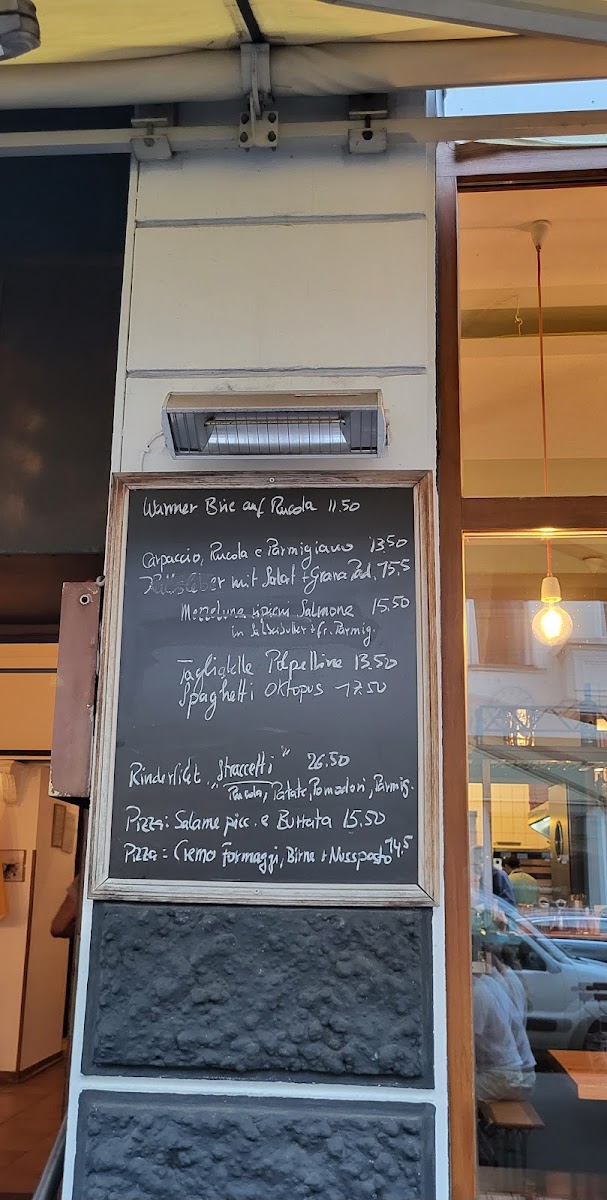 Warmer Brie auf Rucola 11.50
Carpaccio, Rucola e Parmigiano 13,50
mit Salat + Grana Pad. 15,5
Mezzelune ripieni Salmone 15.50
in Salbeibutter + fr. Parmig.
Tagliatelle Polpettine 13,50
Spaghetti Oktopus 17.50
Rinderfilet „Straccetti" 26.50
Rucola, Patate, Pomodori, Parmig.
Pizza: Salame picc. e Burrata 15.50
Pizza = Cremo Formaggi, Birne + Nusspesto 14,5